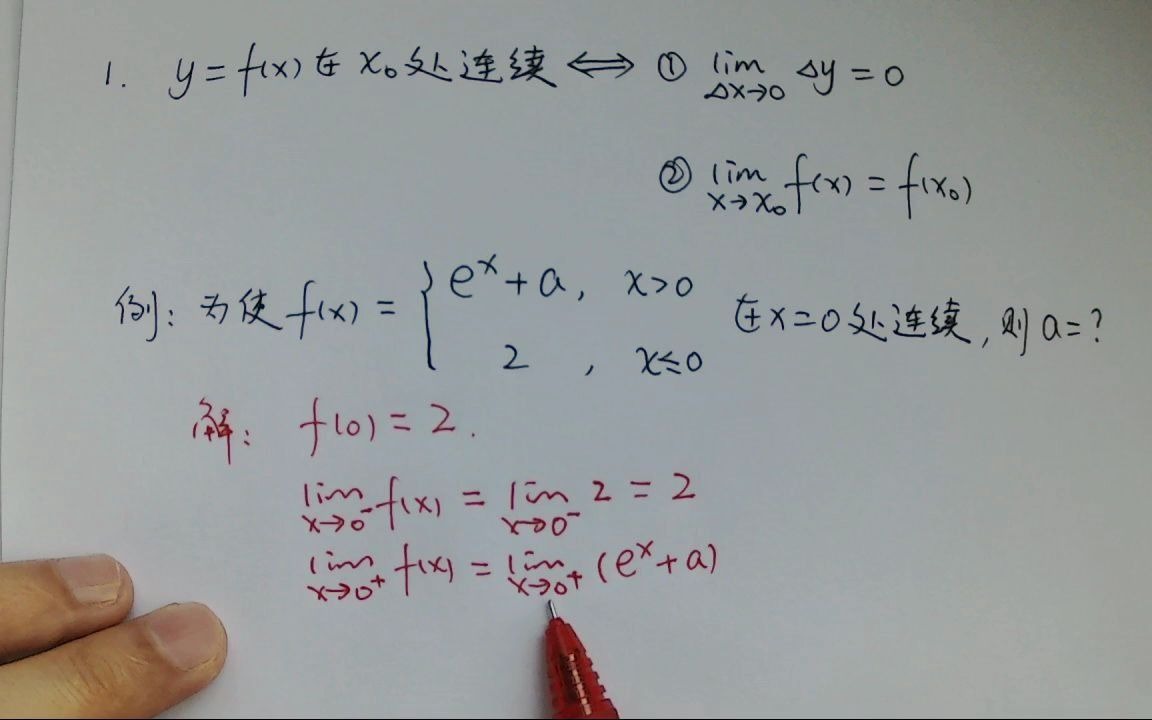 1. y=f(x)在x₀处连续 ⟺ ① lim Δx→0 Δy=0
② lim x→x₀ f(x)=f(x₀)
例: 为使f(x)= { eˣ+a, x>0
2, x≤0
在x=0处连续,则a=?
解: f(0)=2.
lim x→0⁻ f(x) = lim x→0⁻ 2 = 2
lim x→0⁺ f(x) = lim x→0⁺ (eˣ+a)